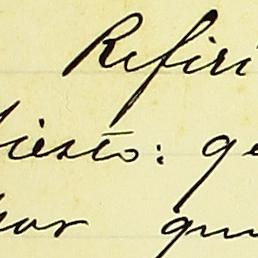 Refiri
iesto: qe
por qu